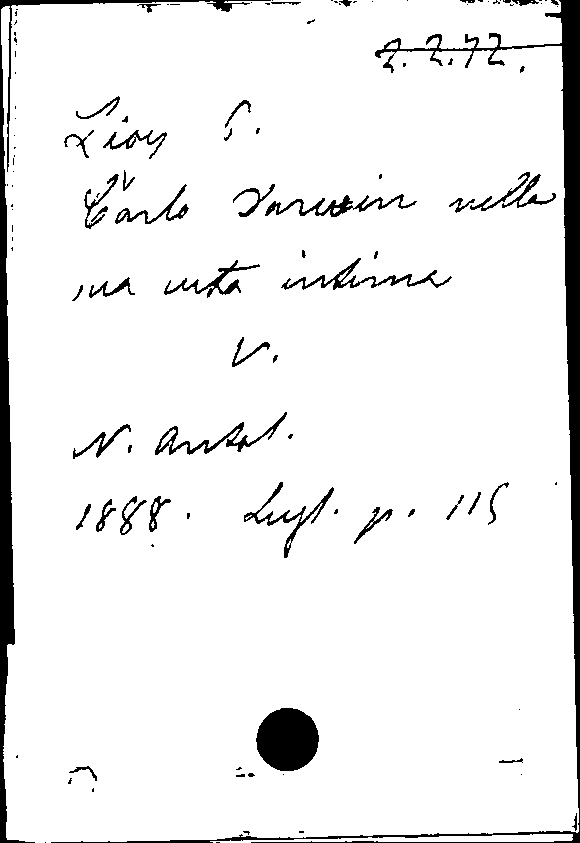 2.2.72.
Lioy P.
Carlo Darwin nella
sua vita intima
V.
N. Antol.
1888. Lugl. p. 115